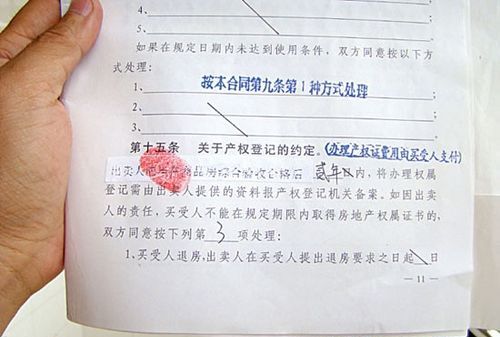 4、
5、
如果在规定日期内未达到使用条件，双方同意按以下方
式处理：
1、按本合同第九条第1种方式处理
2、
3、
第十五条 关于产权登记的约定。(办理产权证费用由买受人支付)
出卖人 商品房综合验收合格后 贰年 内，将办理权属
登记需由出卖人提供的资料报产权登记机关备案。如因出卖
人的责任，买受人不能在规定期限内取得房地产权属证书的，
双方同意按下列第 3 项处理：
1、买受人退房，出卖人在买受人提出退房要求之日起 日
— 11 —